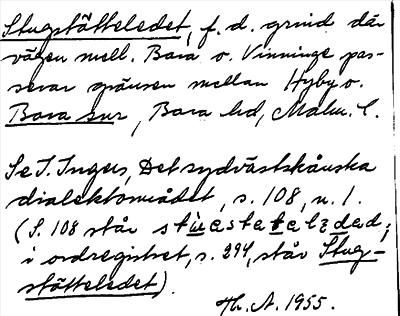 Stugstätteledet, f. d. grind där
vägen mell. Bara o. Vinninge pas-
serar gränsen mellan Hyby o.
Bara snr, Bara hd, Malm. l.
Se I. Ingers, Det sydvästskånska
dialektområdet, s. 108, n. 1.
(S. 108 står
i ordregistret, s. 294, står Stug-
stätteledet).
Th. A. 1955.